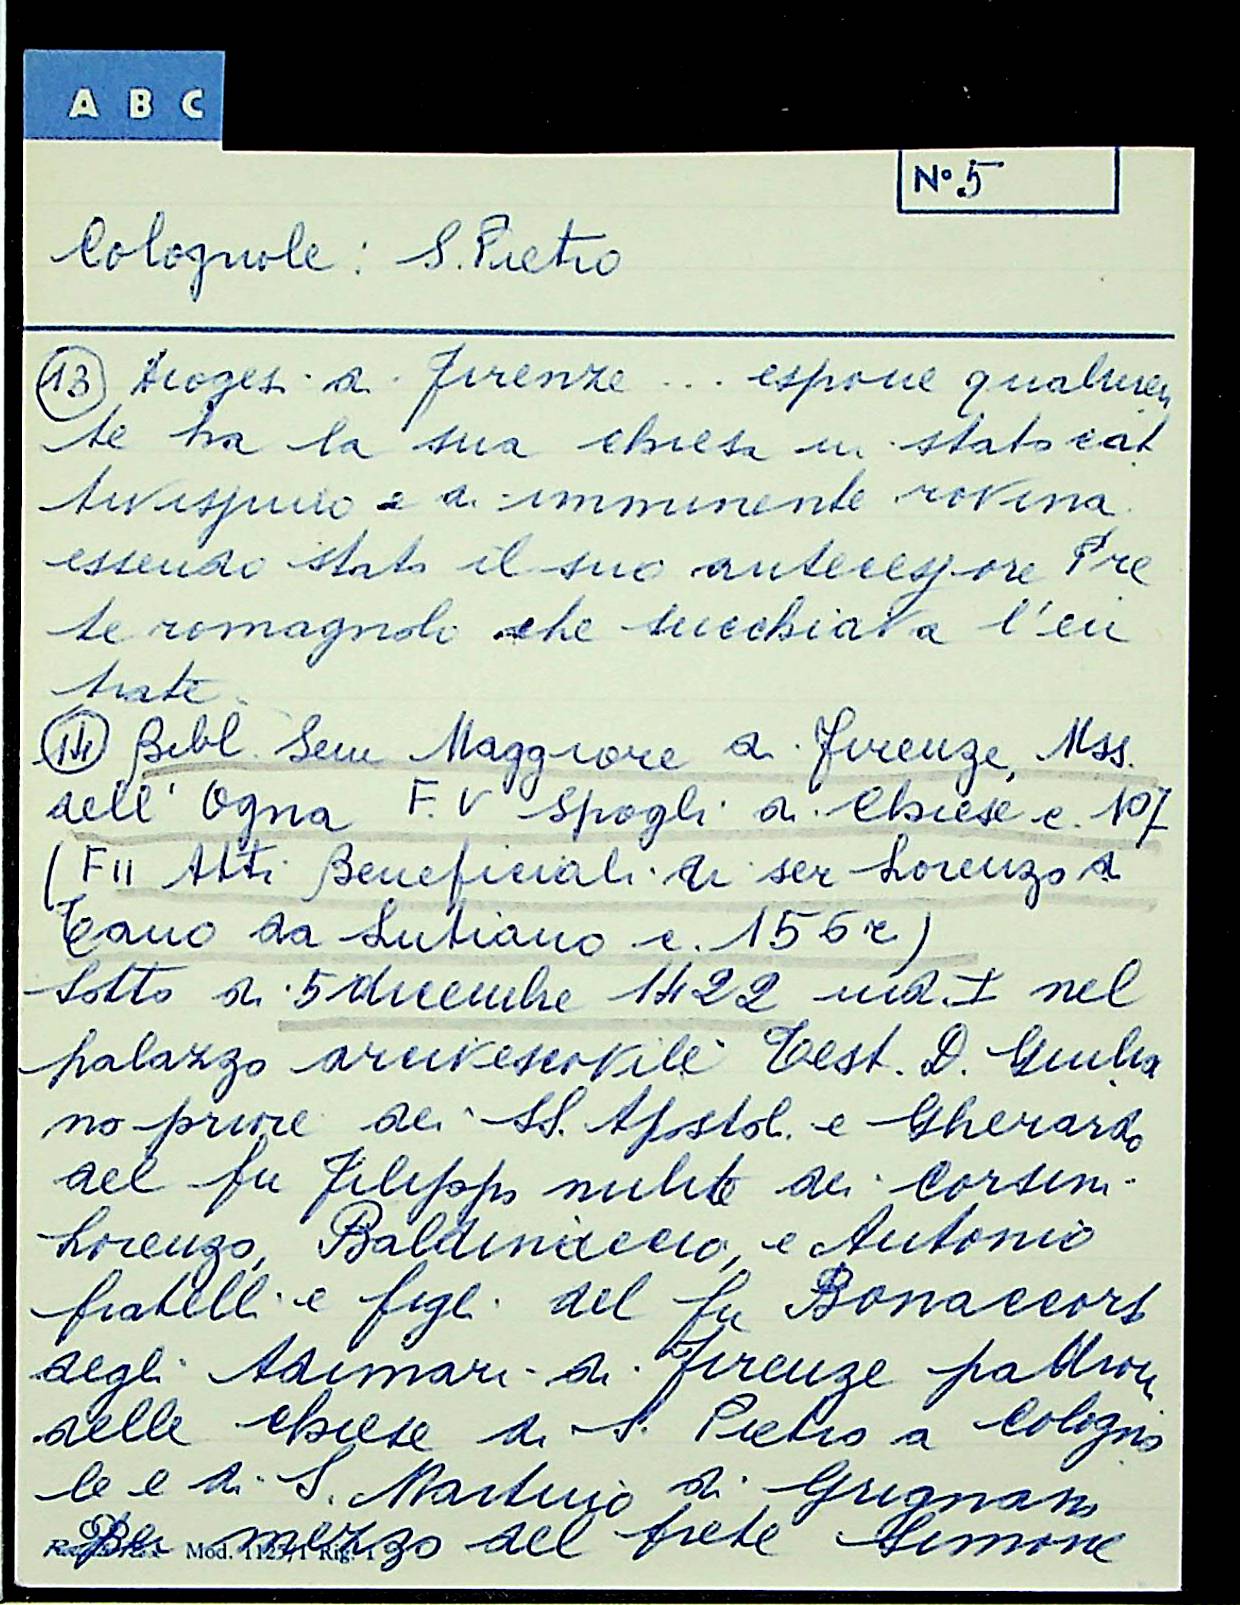 A B C
Nº 5
Colognole: S. Pietro
(13) Diogesi di Firenze ... espone qualmen
te ha la sua chiesa in stato cat
tivissimo e di imminente rovina
essendo stato il suo antecessore Pre
te romagnolo che succhiava l'en
trate.
(14) Bibl. Sem Maggiore di Firenze, Mss.
dell'Ogna F. V Spogli di Chiese c. 107
(F11 Atti Beneficiali di ser Lorenzo di
Tano da Lutiano c. 156r)
Sotto di 5 dicembre 1422 ind. I nel
palazzo arcivescovile Test. D. Giulia
no priore dei SS. Apostol. e Gherardo
del fu Filippo milite dei Corsini
Lorenzo, Baldinaccio, e Antonio
fratelli e figli del fu Bonaccorso
degli Adimari di Firenze patroni
delle chiese di S. Pietro a Cologno
le e di S. Martino di Grignano
Per mezzo del prete Simone
Mod. 1125/1 Rig. 1